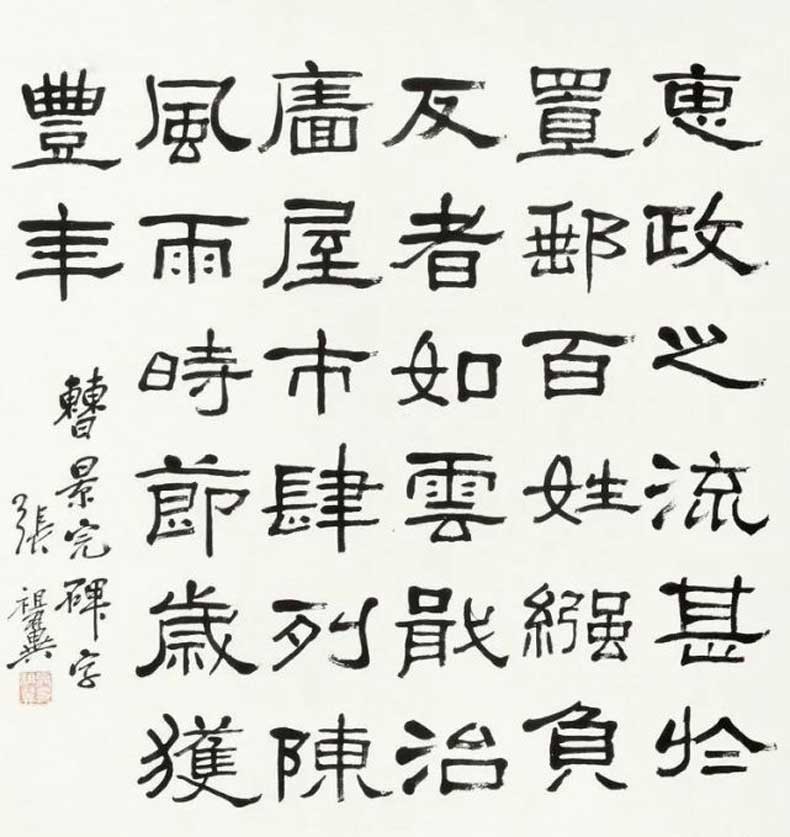 惠政之流甚於
置郵百姓繦負
反者如雲戢治
廧屋市肆列陳
風雨時節歲獲
豐年
曹景完碑字
張祖翼